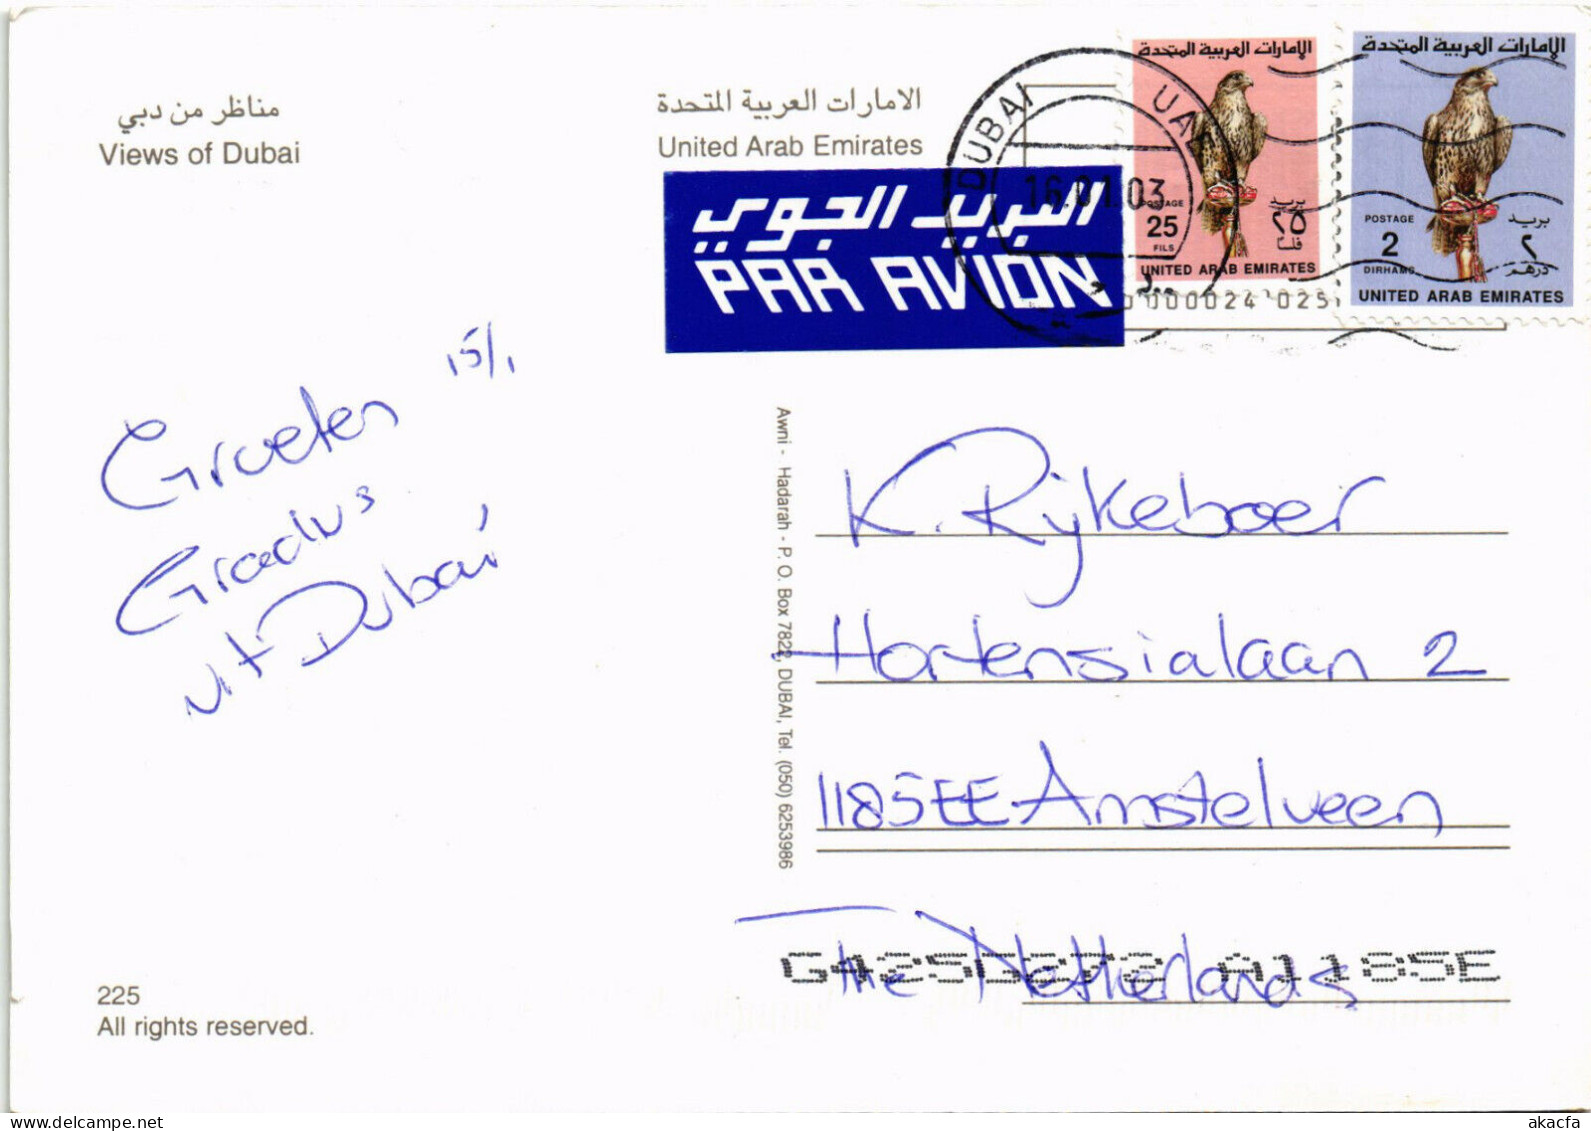 مناظر من دبي
Views of Dubai
الامارات العربية المتحدة
United Arab Emirates
البريد الجوي
PAR AVION
DUBAI UAE
16.01.03
الإمارات العربية المتحدة
POSTAGE
25
FILS
بريد
٢٥
فلسا
UNITED ARAB EMIRATES
000024 025
الإمارات العربية المتحدة
POSTAGE
2
DIRHAMS
بريد
٢
درهم
UNITED ARAB EMIRATES
15/1
Groeten
Gradus
uit Dubai
Awni - Hadarah - P. O. Box 7822, DUBAI, Tel. (050) 6253986
K. Rijkeboer
Hortensialaan 2
1185EE Amstelveen
The Netherlands
A1185E
225
All rights reserved.
www.delcampe.net
akacfa